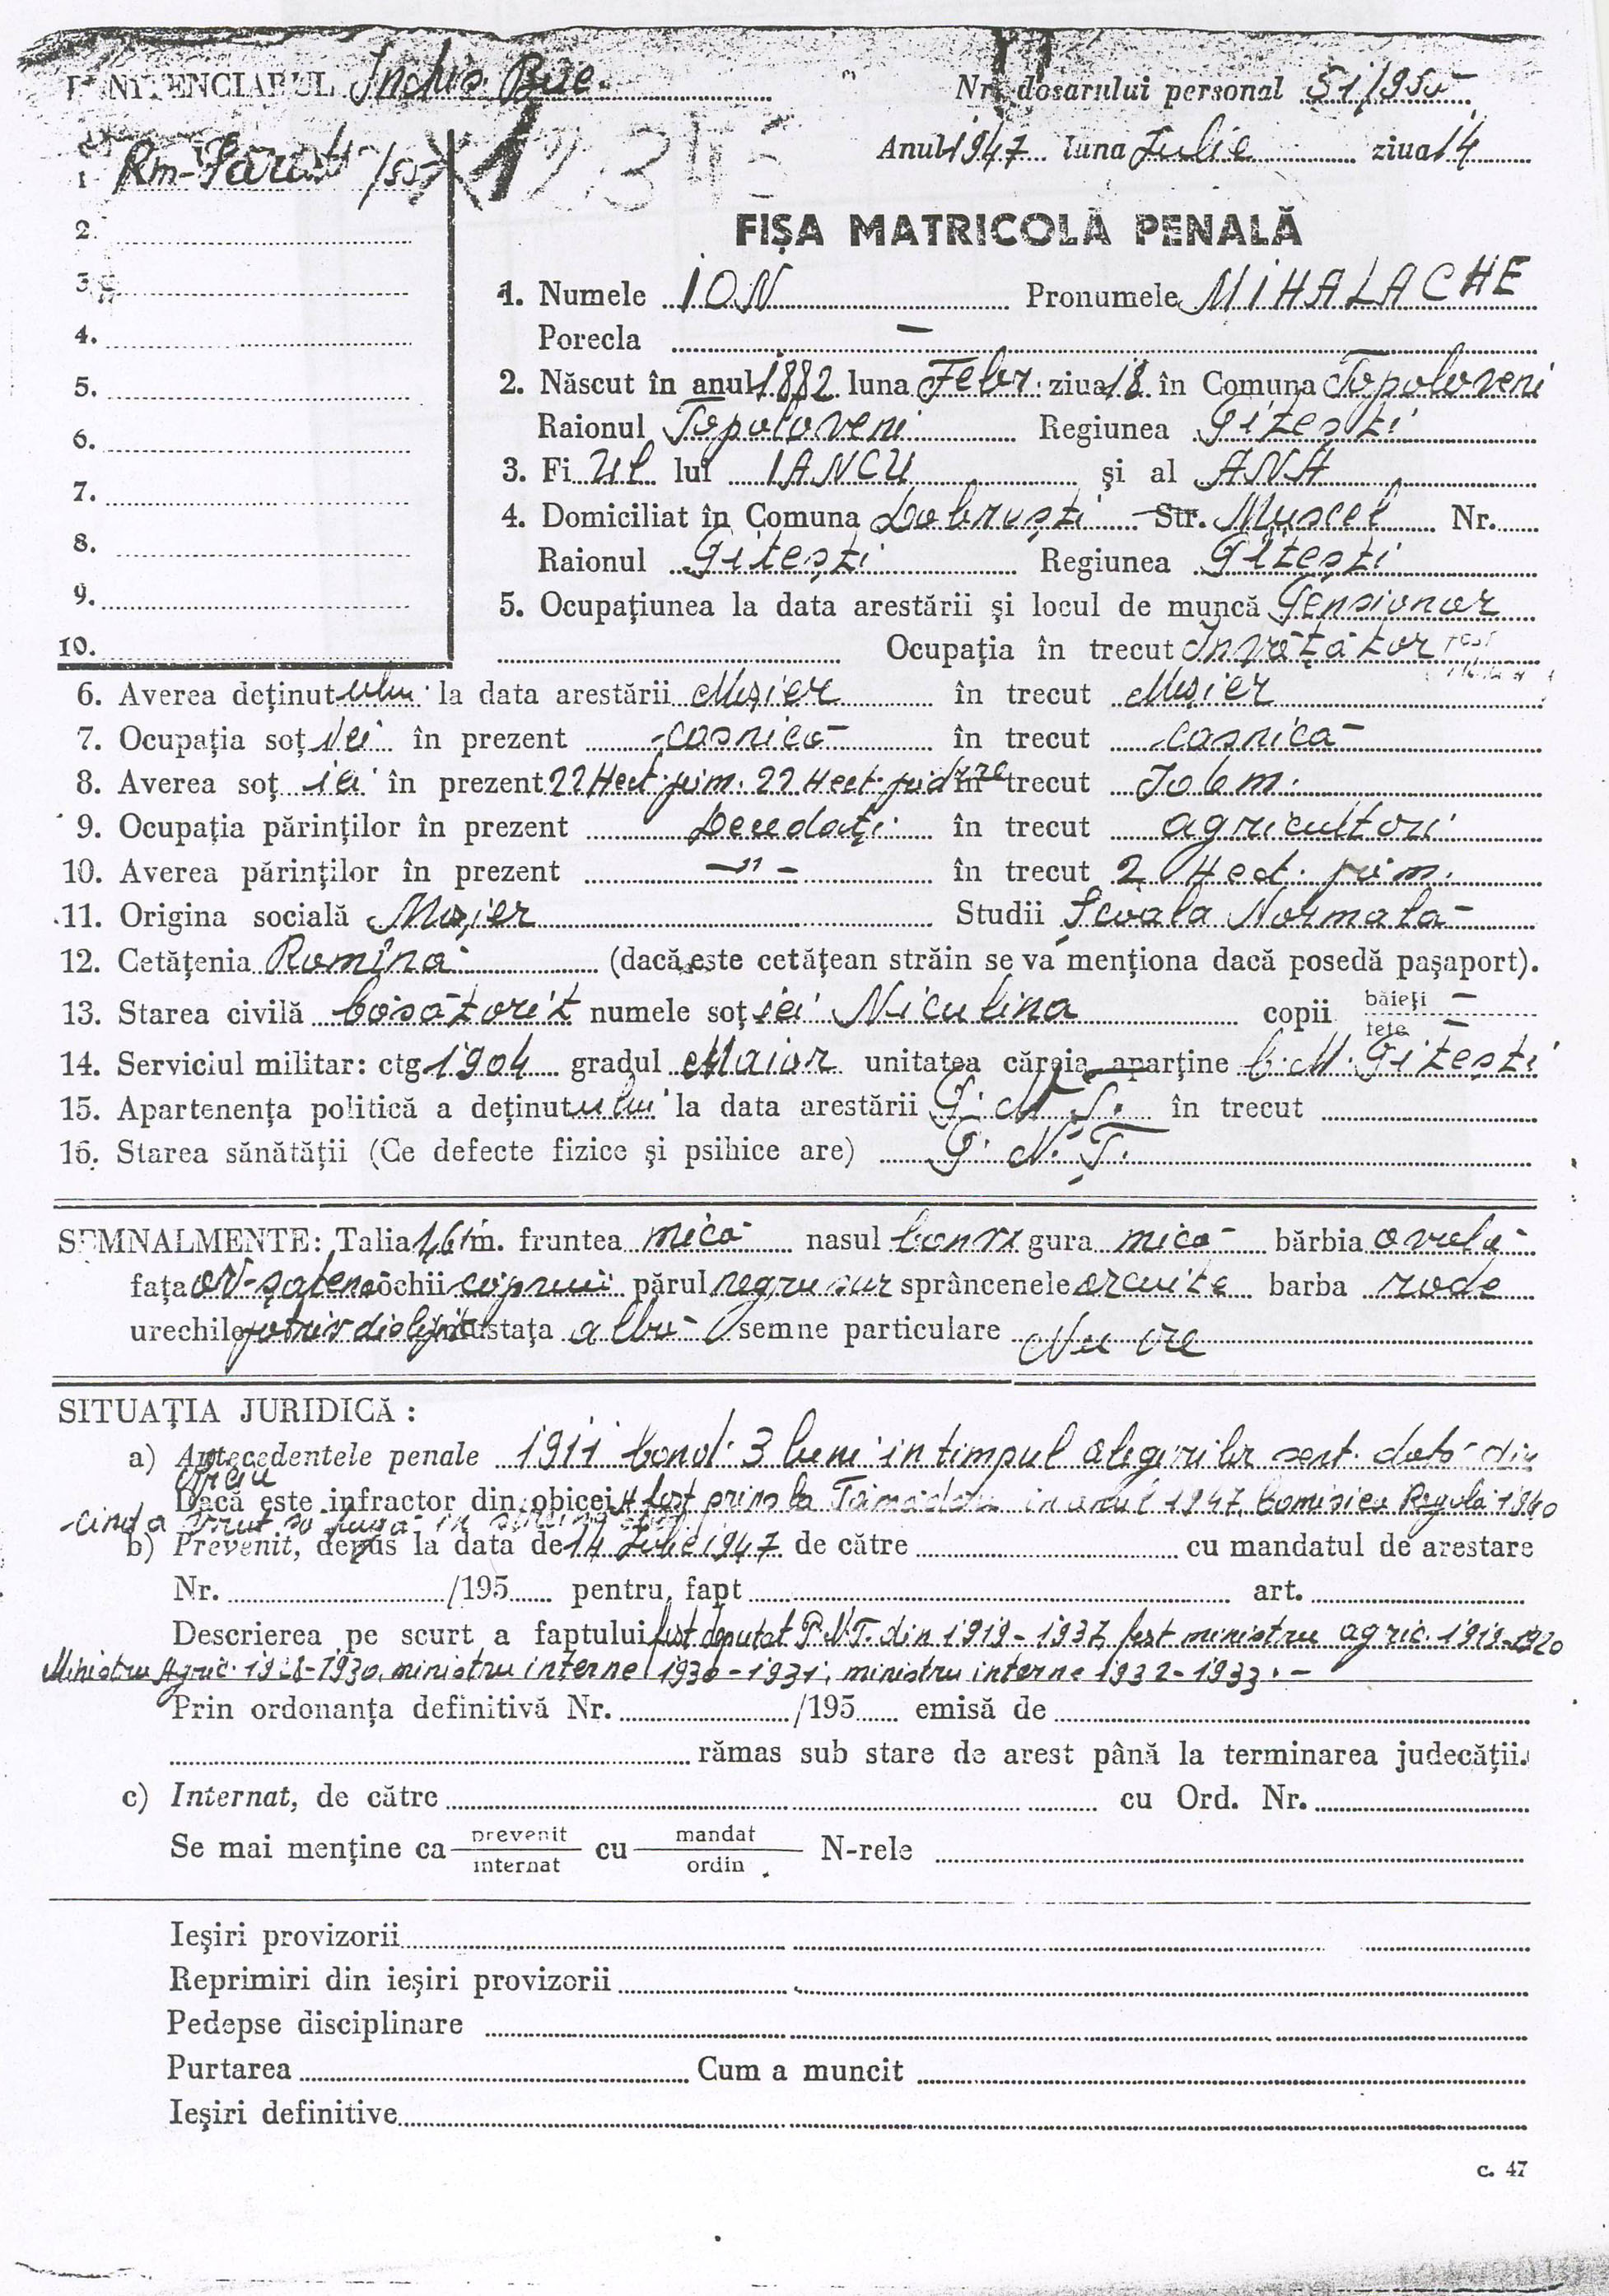 PENITENCIARUL Închis. Buc. Nr. dosarului personal 51/955
Anul 1947 luna Iulie ziua 14
1 Rm-Sarat /955 12345
2.
3.
4.
5.
6.
7.
8.
9.
10.
FIȘA MATRICOLĂ PENALĂ
1. Numele ION Pronumele MIHALACHE
Porecla —
2. Născut în anul 1882 luna Febr. ziua 18 în Comuna Topoloveni
Raionul Topoloveni Regiunea Pitești
3. Fi ul lui IANCU și al ANA
4. Domiciliat în Comuna Dobrești Str. Muscel Nr.
Raionul Pitești Regiunea Pitești
5. Ocupațiunea la data arestării și locul de muncă Pensionar
Ocupația în trecut Învățător fost
6. Averea deținut ului la data arestării Moșier în trecut Moșier
7. Ocupația soț iei în prezent casnică în trecut casnică
8. Averea soț iei în prezent 22 Hect. păm. 22 Hect. pădure în trecut Idem.
9. Ocupația părinților în prezent Decedați în trecut agricultori
10. Averea părinților în prezent —"— în trecut 2 Hect. păm.
11. Origina socială Moșier Studii Școala Normală
12. Cetățenia Romînă (dacă este cetățean străin se va menționa dacă posedă pașaport).
13. Starea civilă Căsătorit numele soț iei Niculina copii băieți —
fete —
14. Serviciul militar: ctg 1904 gradul Maior unitatea căreia aparține C.M. Pitești
15. Apartenența politică a deținut ului la data arestării P.N.Ț. în trecut
16. Starea sănătății (Ce defecte fizice și psihice are) P.N.Ț.
SEMNALMENTE: Talia 1,61 m. fruntea mică nasul gura mică bărbia ovală
fața ochii căprui părul negru sur sprâncenele arcuite barba rade
urechile mustața albă semne particulare Nu are
SITUAȚIA JURIDICĂ :
a) Antecedentele penale 1911 Cond. 3 luni în timpul alegerilor sent. dată din
Dacă este infractor din obicei A fost prins la Tămădău în anul 1947, Regală 1940
cînd a vrut să fugă în
b) Prevenit, depus la data de 14 Iulie 1947 de către cu mandatul de arestare
Nr. /195 pentru fapt art.
Descrierea pe scurt a faptului fost deputat P.N.Ț. din 1919-1937, fost ministru agric. 1919-1920
Ministru Agric. 1928-1930, ministru interne 1930-1931, ministru interne 1932-1933.-
Prin ordonanța definitivă Nr. /195 emisă de
rămas sub stare de arest până la terminarea judecății.
c) Internat, de către cu Ord. Nr.
Se mai menține ca prevenit cu mandat N-rele
internat ordin
Ieșiri provizorii
Reprimiri din ieșiri provizorii
Pedepse disciplinare
Purtarea Cum a muncit
Ieșiri definitive
c. 47